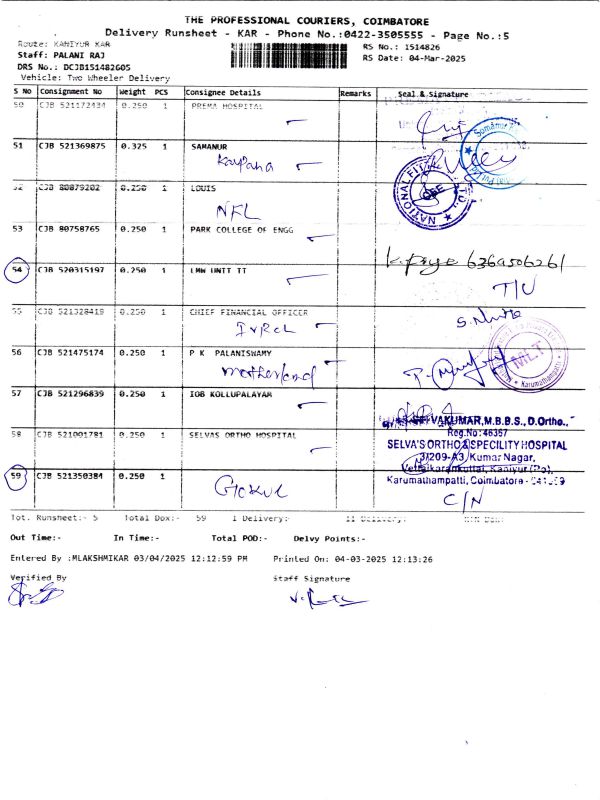 THE PROFESSIONAL COURIERS, COIMBATORE
Delivery Runsheet - KAR - Phone No.:0422-3505555 - Page No.:5
Route: KANIYUR KAR RS No.: 1514826
Staff: PALANI RAJ RS Date: 04-Mar-2025
DRS No.: DCJB151482605
Vehicle: Two Wheeler Delivery
S No Consignment No Weight PCS Consignee Details Remarks Seal & Signature
50 CJB 521172434 0.250 1 PREMA HOSPITAL
51 CJB 521369875 0.325 1 SAMANUR
Kalpana
52 CJB 80879202 0.250 1 LOUIS
NFL
NATIONAL CBE
53 CJB 80758765 0.250 1 PARK COLLEGE OF ENGG
6369506261
54 CJB 520315197 0.250 1 LMW UNIT II
T/U
55 CJB 521328419 0.250 1 CHIEF FINANCIAL OFFICER
56 CJB 521475174 0.250 1 P K PALANISWAMY
motherland
MLT
Karumathampatti
57 CJB 521296839 0.250 1 IOB KOLLUPALAYAM
58 CJB 521001781 0.250 1 SELVAS ORTHO HOSPITAL
VAKUMAR, M.B.B.S., D.Ortho.,
Reg.No:46367
SELVA'S ORTHO & SPECILITY HOSPITAL
3/209-A3, Kumar Nagar,
Kaniyur (Po),
Karumathampatti, Coimbatore -
59 CJB 521350384 0.250 1
Gokul
C/N
Tot. Runsheet:- 5 Total Dox:- 59
Out Time:- In Time:- Total POD:- Delvy Points:-
Entered By :MLAKSHMIKAR 03/04/2025 12:12:59 PM Printed On: 04-03-2025 12:13:26
Verified By Staff Signature